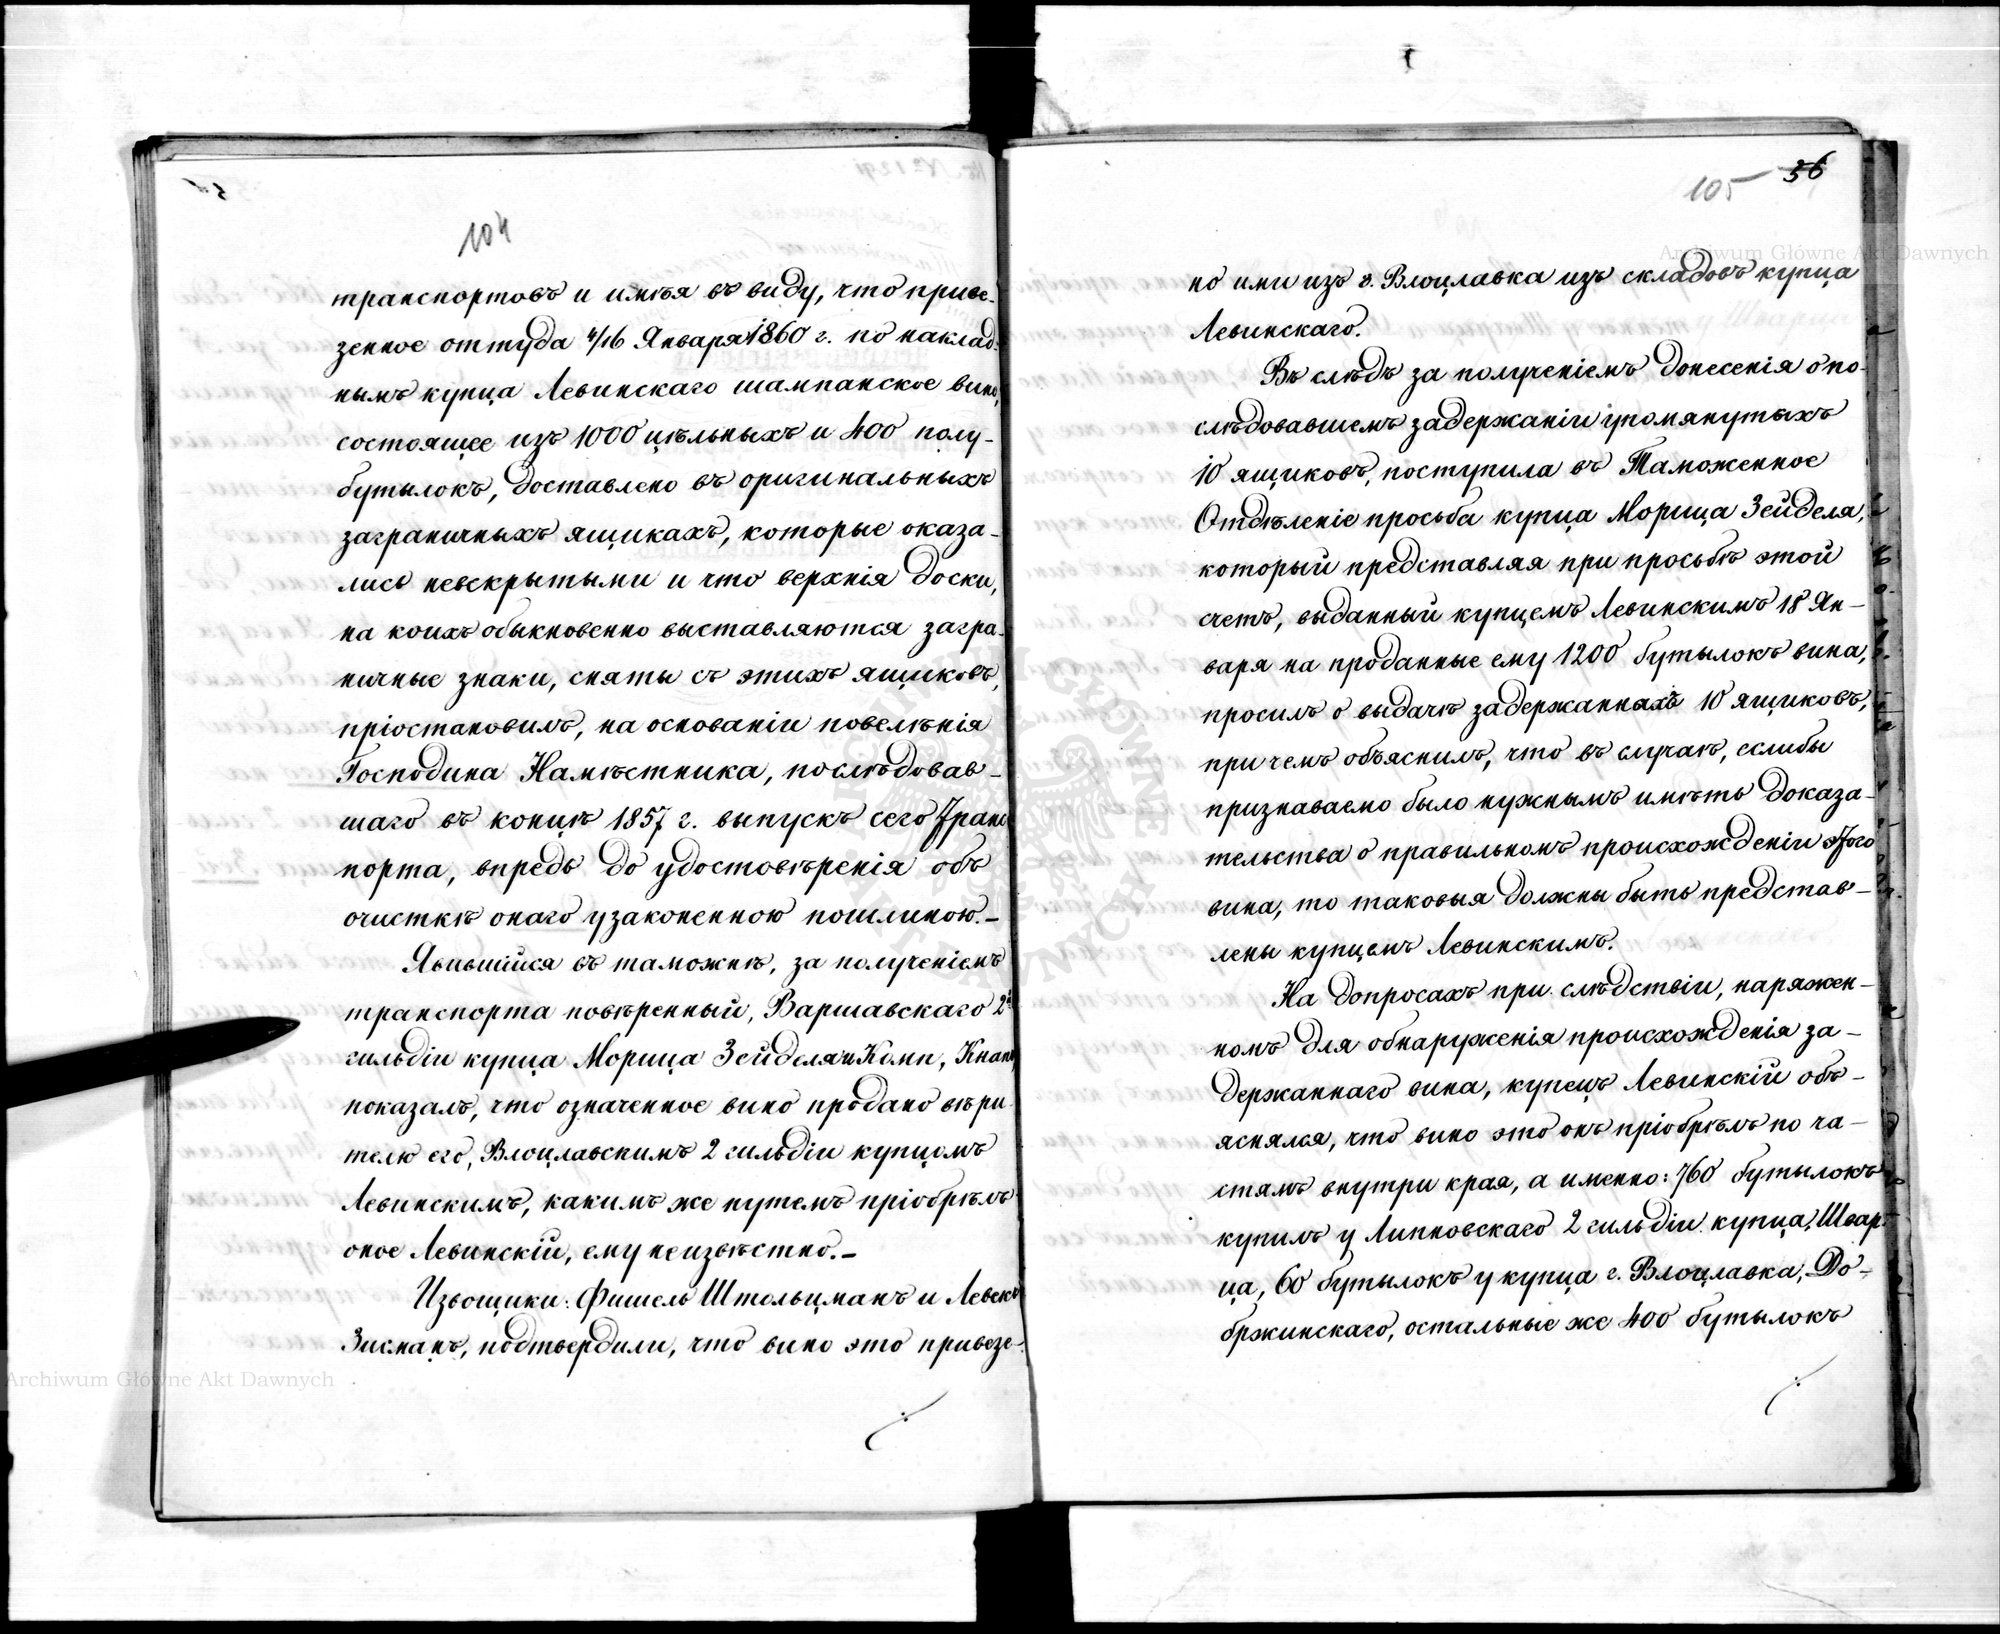 104
транспортовъ и имѣя въ виду, что приве-
зенное оттуда 4/16 Января 1860 г. по наклад-
нымъ купца Левинскаго шампанское вино,
состоящее изъ 1000 цѣльныхъ и 400 полу-
бутылокъ, доставлено въ оригинальныхъ
заграничныхъ ящикахъ, которые оказа-
лись невскрытыми и что верхнія доски,
на коихъ обыкновенно выставляются загра-
ничные знаки, сняты съ этихъ ящиковъ,
пріостановилъ, на основаніи повелѣнія
Господина Намѣстника, послѣдовав-
шаго въ концѣ 1857 г. выпускъ сего транс
порта, впредь до удостовѣренія объ
очисткѣ онаго узаконенною пошлиною.-
Явившійся въ таможнѣ, за полученіемъ
транспорта повѣренный, Варшавскаго 2й
гильдіи купца Морица Зейделя и Комп, Кнапъ,
показалъ, что означенное вино продано вѣри
телю его, Влоцлавскимъ 2 гильдіи купцомъ
Левинскимъ, какимъ же путемъ пріобрѣлъ
оное Левинскій, ему неизвѣстно.-
Извощики: Фишель Штольцманъ и Левекъ
Зисманъ, подтвердили, что вино это привезе-
105 56
но ими изъ г. Влоцлавка изъ складовъ купца
Левинскаго.
Въ слѣдъ за полученіемъ донесенія о по-
слѣдовавшемъ задержаніи упомянутыхъ
10 ящиковъ, поступила въ Таможенное
Отдѣленіе просьба купца Морица Зейделя,
который представляя при просьбѣ этой
счетъ, выданный купцемъ Левинскимъ 18 Ян-
варя на проданные ему 1200 бутылокъ вина,
просилъ о выдачѣ задержанныхъ 10 ящиковъ,
при чемъ объяснилъ, что въ случаѣ, еслибы
признаваемо было нужнымъ имѣть доказа-
тельства о правильномъ происхожденіи этого
вина, то таковыя должны быть представ-
лены купцемъ Левинскимъ.
На допросахъ при слѣдствіи, наряжен-
номъ для обнаруженія происхожденія за-
держаннаго вина, купецъ Левинскій объ-
яснялся, что вино это онъ пріобрѣлъ по ча-
стямъ внутри края, а именно: 760 бутылокъ
купилъ у Липновскаго 2 гильдіи купца, Швар-
ца, 60 бутылокъ у купца г. Влоцлавка, До-
бржинскаго, остальные же 400 бутылокъ
Archiwum Główne Akt Dawnych
Archiwum Główne Akt Dawnych